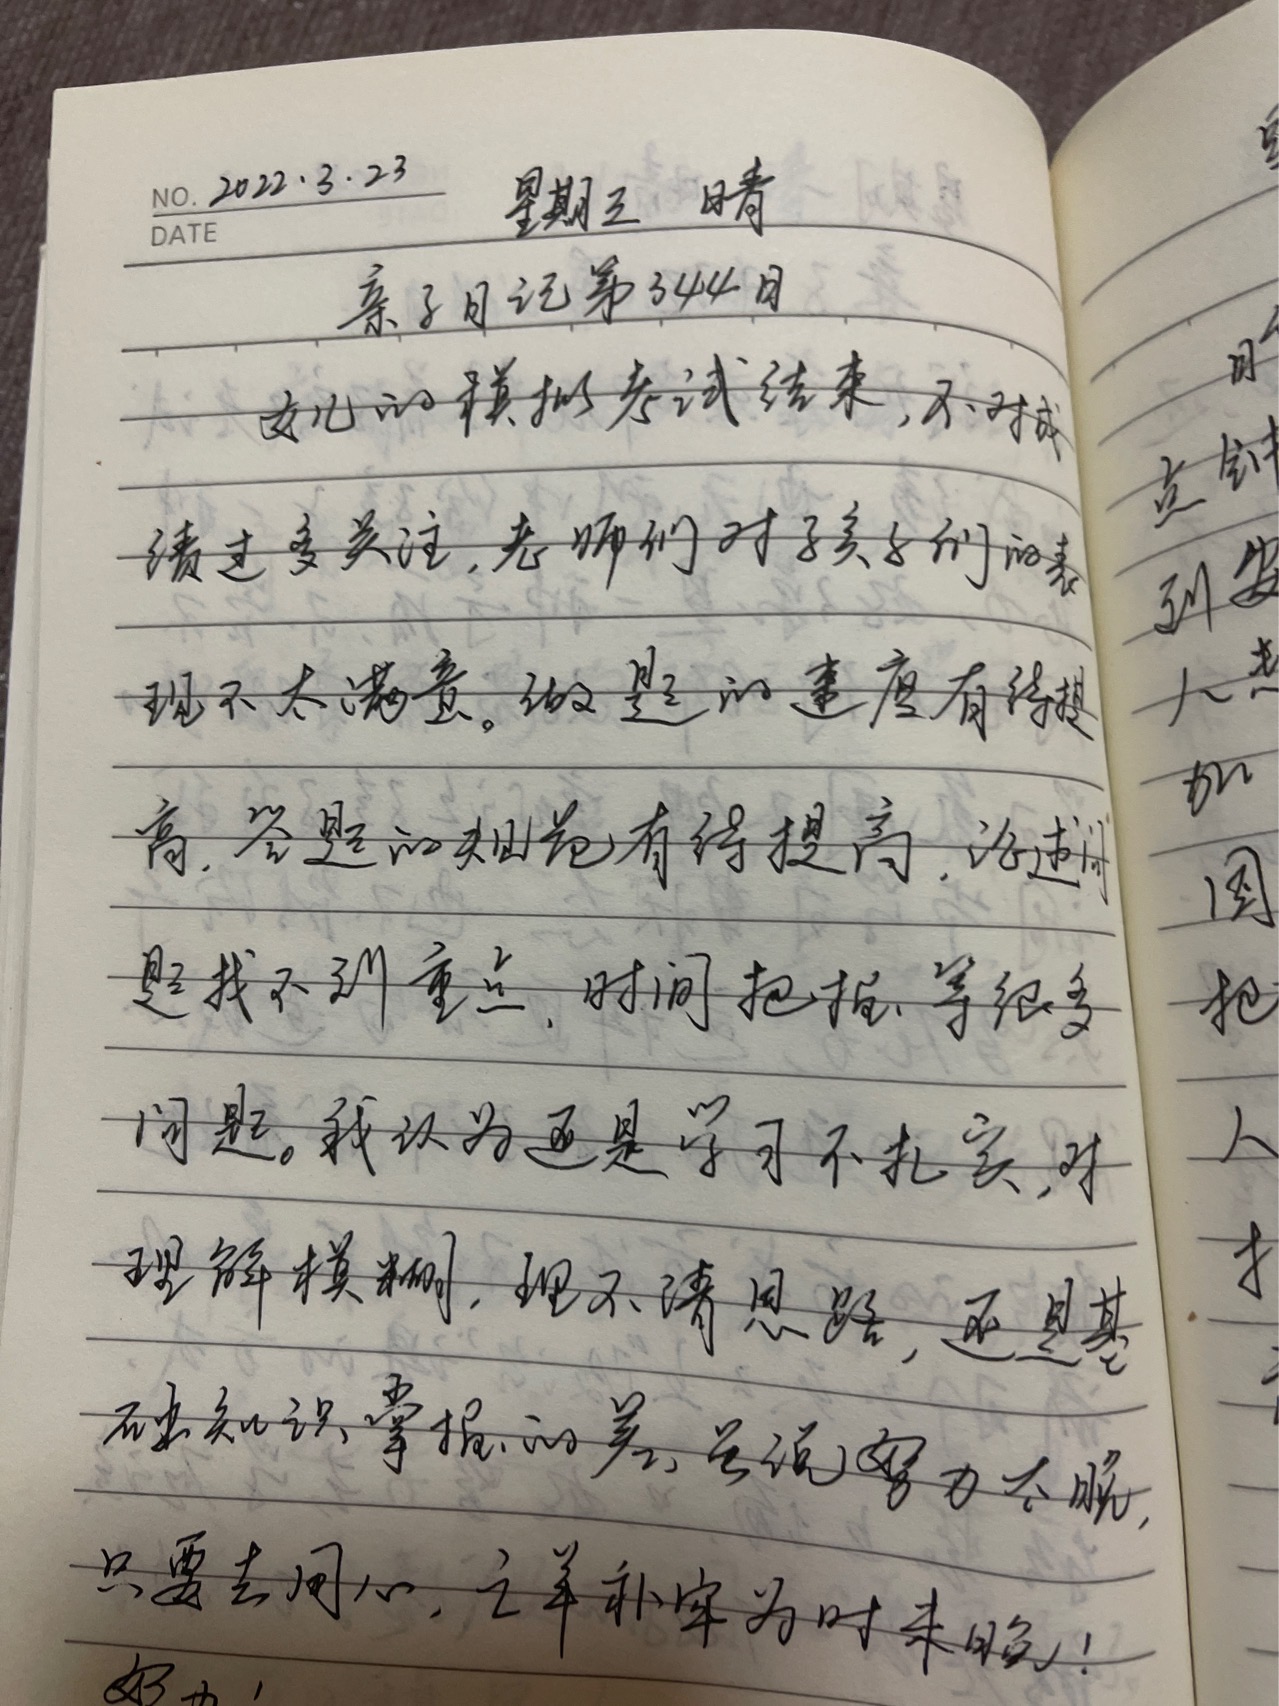 NO. 2022.3.23 星期三 晴
DATE
亲子日记第344日
女儿的模拟考试结束,不对成
绩过多关注,老师们对孩子们的表
现不太满意。做题的速度有待提
高,答题的规范有待提高,论述问
题找不到重点,时间把握、等很多
问题。我认为还是学习不扎实,对
理解模糊,理不清思路,还是基
础知识掌握的差、虽说努力太晚,
只要去用心,亡羊补牢为时未晚!
努力!
点钟
到安
人
加
图
把
人